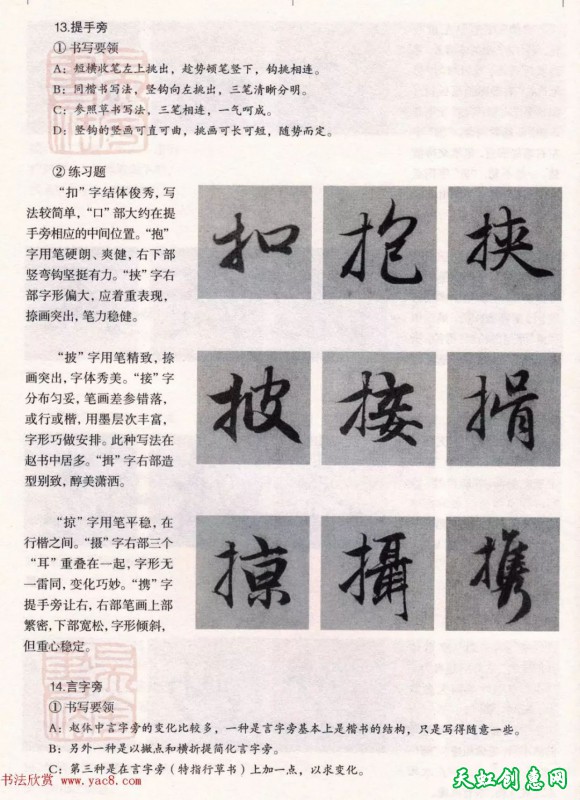 13.提手旁
① 书写要领
A：短横收笔左上挑出，趁势领笔竖下，钩挑相连。
B：同楷书写法，竖钩向左挑出，三笔清晰分明。
C：参照草书写法，三笔相连，一气呵成。
D：竖钩的竖画可直可曲，挑画可长可短，随势而定。
② 练习题
“扣”字结体俊秀，写
法较简单，“口”部大约在提
手旁相应的中间位置。“抱”
字用笔硬朗、爽健，右下部
竖弯钩坚挺有力。“挟”字右
部字形偏大，应着重表现，
捺画突出，笔力稳健。
扣 抱 挟
“披”字用笔精致，捺
画突出，字体秀美。“接”字
分布匀妥，笔画差参错落，
或行或楷，用墨层次丰富，
字形巧做安排。此种写法在
赵书中居多。“揖”字右部造
型别致，醇美潇洒。
披 接 揖
“掠”字用笔平稳，在
行楷之间。“摄”字右部三个
“耳”重叠在一起，字形无
一雷同，变化巧妙。“携”字
提手旁让右，右部笔画上部
繁密，下部宽松，字形倾斜，
但重心稳定。
掠 攝 携
14.言字旁
① 书写要领
A：赵体中言字旁的变化比较多，一种是言字旁基本上是楷书的结构，只是写得随意一些。
B：另外一种是以撇点和横折提简化言字旁。
C：第三种是在言字旁（特指行草书）上加一点，以求变化。
书法欣赏 www.yac8.com
天虹创意网